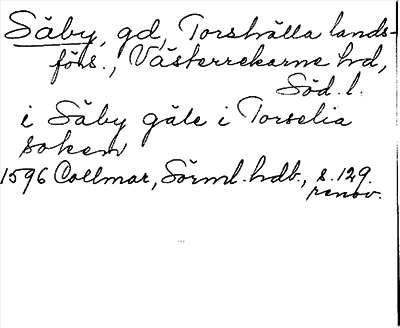 Säby, gd, Torshälla lands-
förs., Västerrekarne hd,
Söd. l.
i Säby gåle i Torselia
soken
1596 Collmar, Sörml. hdb., s. 129.
renov.